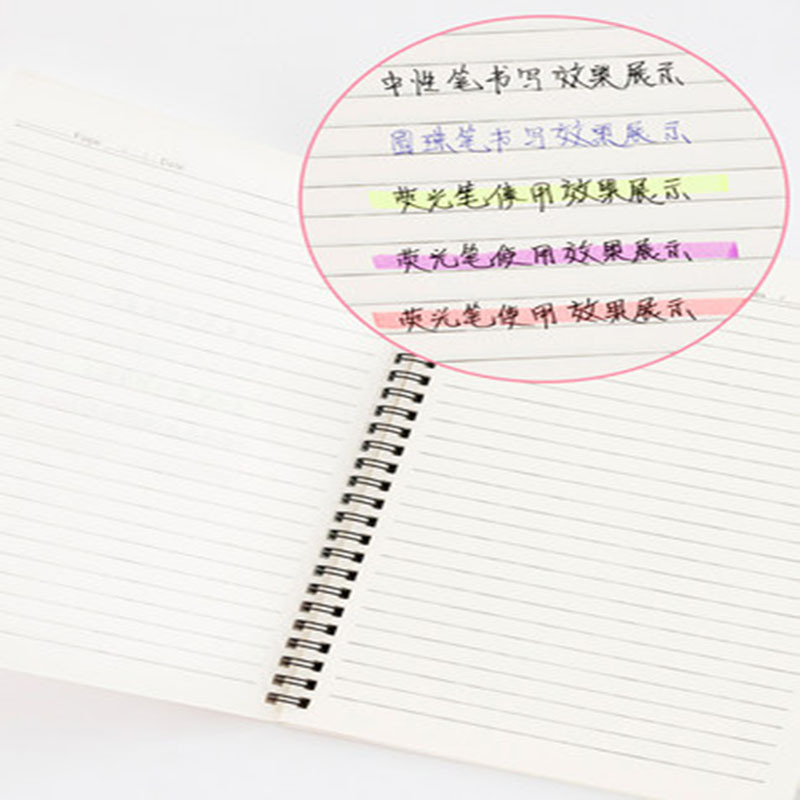 Page
Date
中性笔书写效果展示
圆珠笔书写效果展示
荧光笔使用效果展示
荧光笔使用效果展示
荧光笔使用效果展示